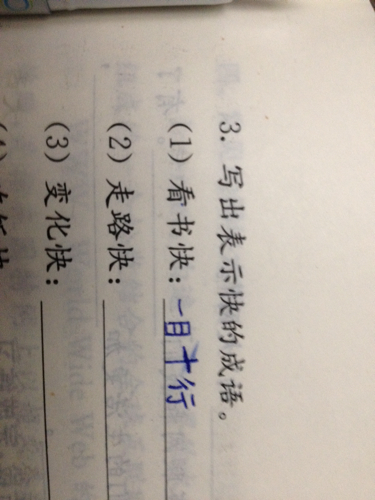 3. 写出表示快的成语。
(1) 看书快：一目十行
(2) 走路快：
(3) 变化快：